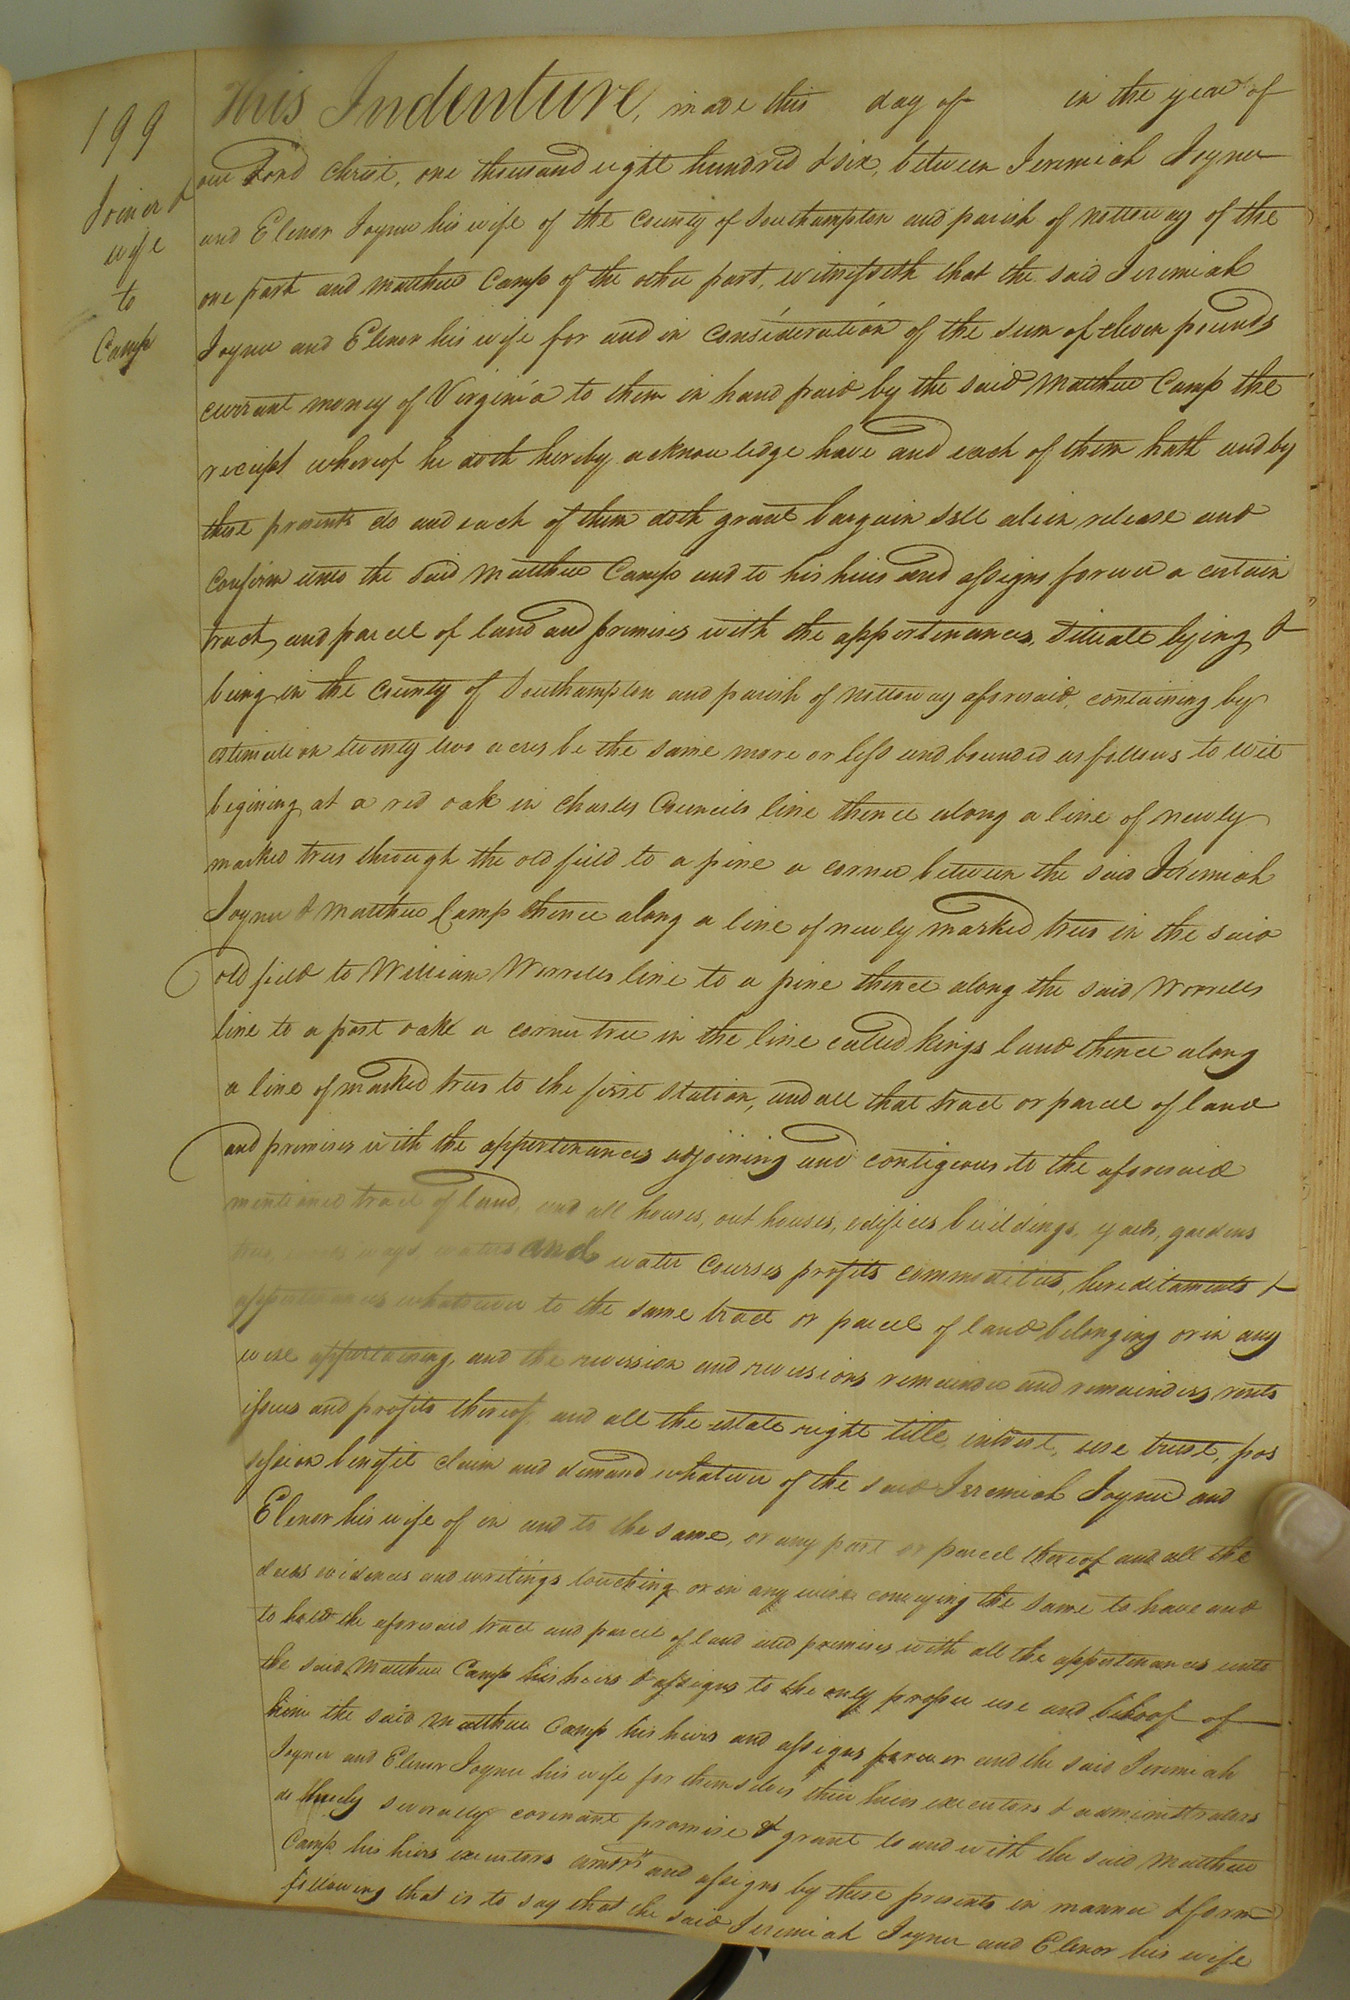 199
Joiner &
wife
to
Camp
This Indenture, made this day of in the year of
our Lord Christ, one thousand eight hundred & six, between Jeremiah Joyner
and Elenor Joyner his wife of the County of Southampton and parish of Nottoway of the
one part and Matthew Camp of the other part, witnesseth that the said Jeremiah
Joyner and Elenor his wife for and in consideration of the sum of eleven pounds
currant money of Virginia to them in hand paid by the said Matthew Camp the
receipt whereof he doth hereby acknowledge have and each of them hath and by
these presents do and each of them doth grant bargain sell alein release and
confirm unto the said Matthew Camp and to his heirs and assigns forever a certain
tract and parcel of land and premises with the appertenances, Situate lying &
being in the County of Southampton and parish of Nottoway aforesaid, containing by
estimation twenty two acres be the same more or less and bounded as follows to wit
begining at a red oak in Charles Councils line thence along a line of newly
marked trees through the old field to a pine a corner between the said Jeremiah
Joyner & Matthew Camp thence along a line of newly marked trees in the said
old field to William Worrells line to a pine thence along the said Worrells
line to a post oake a corner tree in the line called Kings land thence along
a line of marked trees to the first station, and all that tract or parcel of land
and premises with the appertenances adjoining and contigeous to the aforesaid
mentioned tract of land, and all houses, out houses, edifices buildings, yards, gardens
trees, woods ways, waters and water courses profits commodities, hereditaments &
appertenances whatsoever to the same tract or parcel of land belonging or in any
wise appertaining, and the reversion and reversions remainder and remainders rents
issues and profits thereof, and all the estate right title, intrest, use trust, pos
session benefit claim and demand whatever of the said Jeremiah Joyner and
Elenor his wife of in and to the same, or any part or parcel thereof and all the
deeds evidences and writings touching or in any wise conveying the same to have and
to hold the aforesaid tract and parcel of land and premises with all the appertenances unto
the said Matthew Camp his heirs & assigns to the only proper use and behoof of
him the said Matthew Camp his heirs and assigns forever and the said Jeremiah
Joyner and Elenor Joyner his wife for themselves their heirs executors & administrators
do hereby severally covenant promise & grant to and with the said Matthew
Camp his heirs executors admrs and assigns by these presents in manner & form
following that is to say that the said Jeremiah Joyner and Elenor his wife